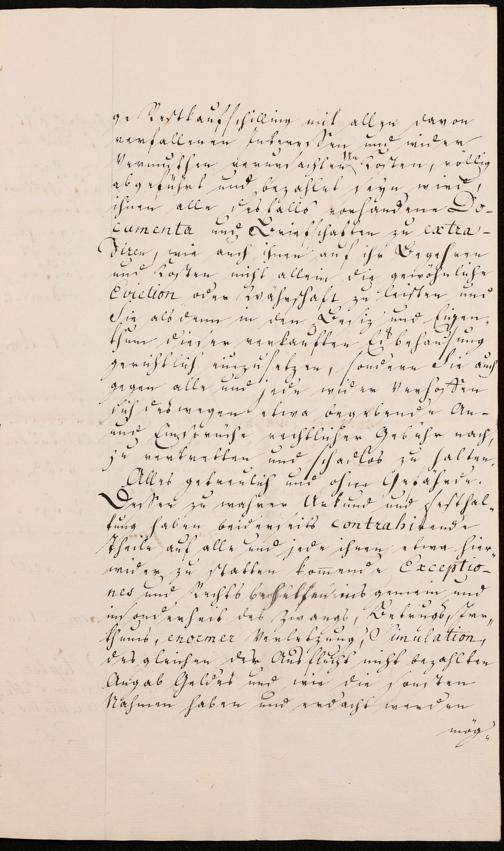 ge Restkaufschilling mit allen davon
verfallenen Interessen und wider
Vermuthen verursachten Kosten, völlig
abgeführt und bezahlet seyn wird,
ihnen alle desfalls vorhandene Do-
cumenta und Briefschaften zu extra-
diren, wie auch ihnen auf ihr Begehren
und Kosten nicht allein die gewöhnliche
Eviction oder Währschaft zu leisten und
Sie alsdenn in den Besiz und Eigen-
thum dieser verkauften Eckbehausung
gerichtlich einzusetzen, sondern Sie auch
gegen alle und jede wider Verhoffen
sich deswegen etwa begebende An-
und Einsprüche rechtlicher Gebühr nach,
zu vertretten und schadlos zu halten.
Alles getreulich und ohne Gefährde.
Dessen zu wahrer Urkund und Festhal-
tung haben beiderseits contrahirende
Theile auf alle und jede ihnen etwa hier-
wider zu statten kommende Exceptio-
nes und Rechtsbehelfen insgemein und
insonderheit des Zwangs, Betrugs, Irr-
thums, enormer Verletzung, Simulation,
desgleichen der Ausflucht nicht bezahlten
Angab Geldes und wie die sonsten
Nahmen haben und erdacht werden
mög-